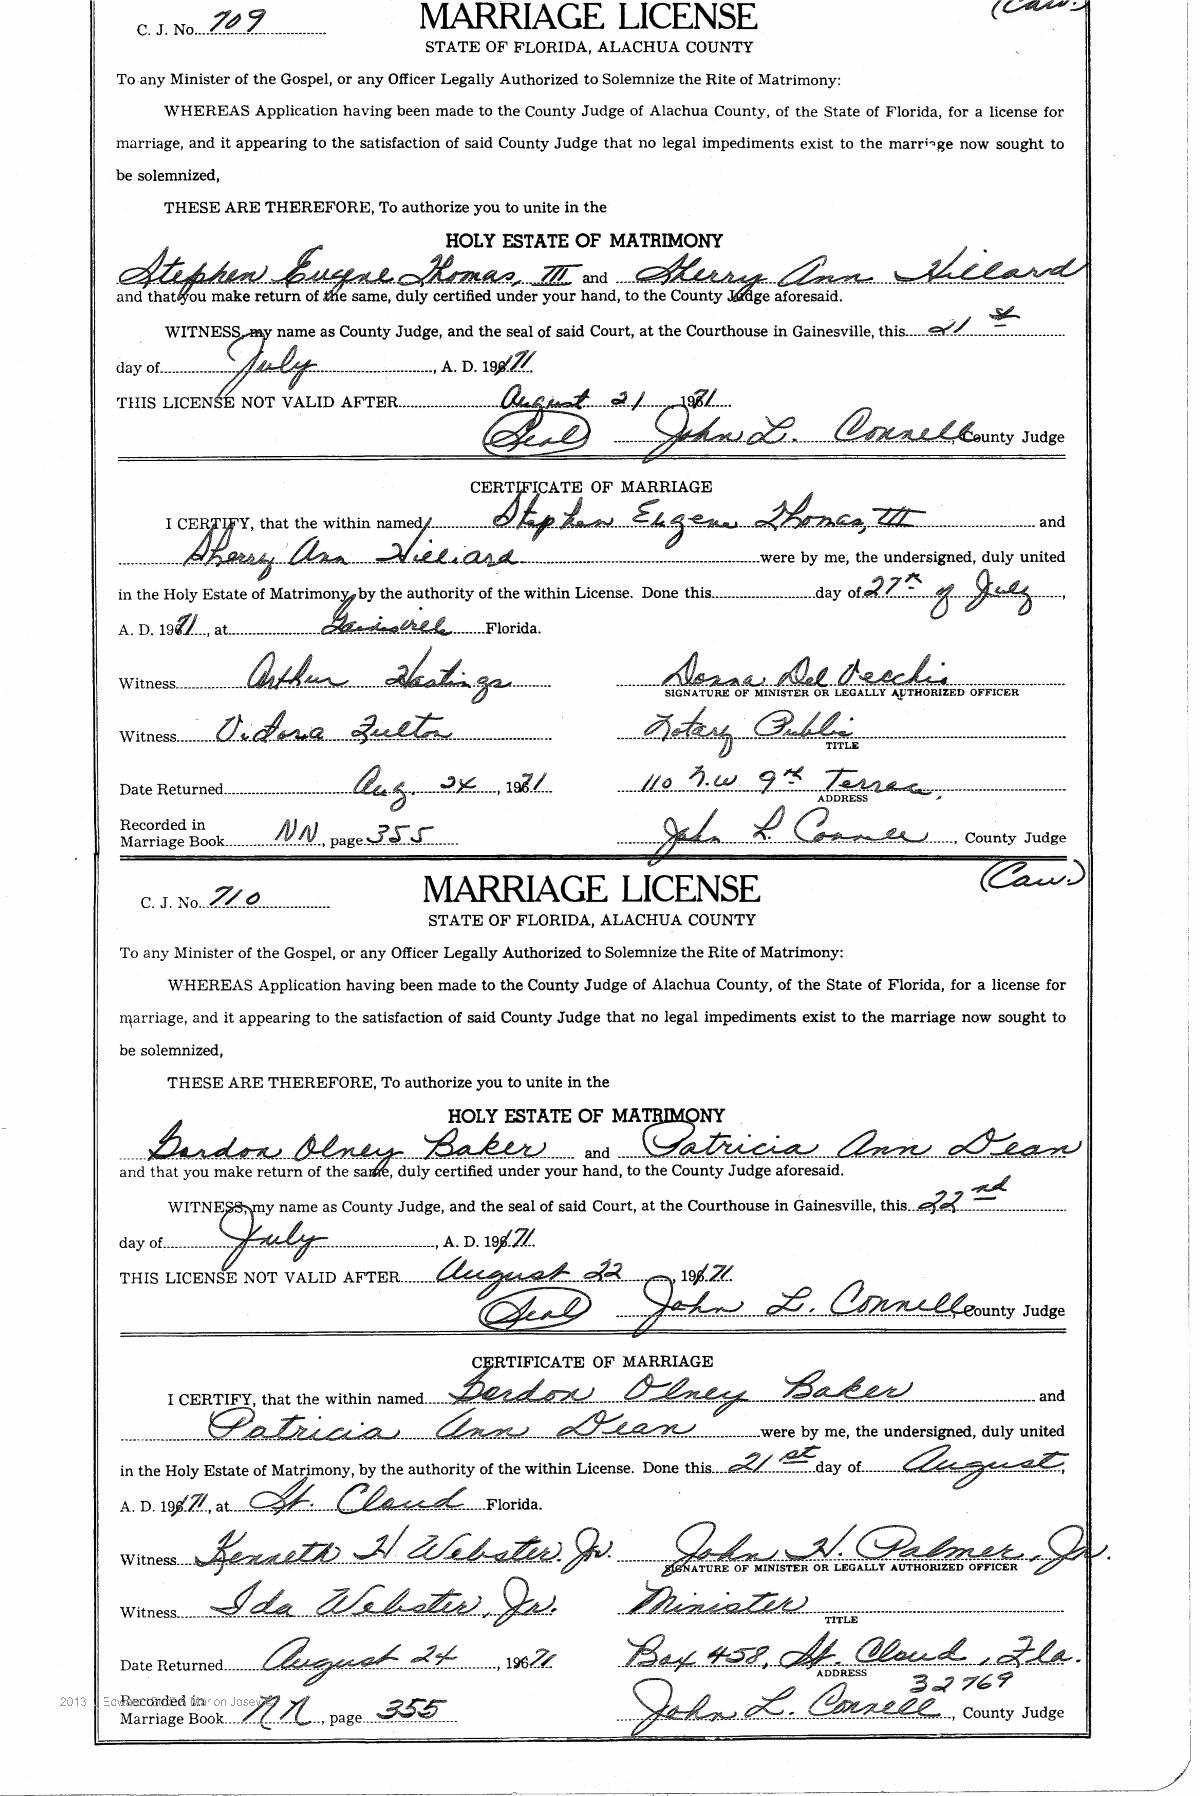 (Cau.)
C. J. No. 709
MARRIAGE LICENSE
STATE OF FLORIDA, ALACHUA COUNTY
To any Minister of the Gospel, or any Officer Legally Authorized to Solemnize the Rite of Matrimony:
WHEREAS Application having been made to the County Judge of Alachua County, of the State of Florida, for a license for
marriage, and it appearing to the satisfaction of said County Judge that no legal impediments exist to the marriage now sought to
be solemnized,
THESE ARE THEREFORE, To authorize you to unite in the
HOLY ESTATE OF MATRIMONY
Stephen Eugene Thomas, III and Sherry Ann Hillard
and that you make return of the same, duly certified under your hand, to the County Judge aforesaid.
WITNESS, my name as County Judge, and the seal of said Court, at the Courthouse in Gainesville, this 21st
day of July, A. D. 1971
THIS LICENSE NOT VALID AFTER August 21 1971
(Seal) John L. Connell County Judge
CERTIFICATE OF MARRIAGE
I CERTIFY, that the within named Stephen Eugene Thomas, III and
Sherry Ann Hilliard were by me, the undersigned, duly united
in the Holy Estate of Matrimony, by the authority of the within License. Done this day of 27th of July,
A. D. 1971, at Florida.
Witness Arthur Hastings Donna Del Vecchio
SIGNATURE OF MINISTER OR LEGALLY AUTHORIZED OFFICER
Witness Victoria Fulton Notary Public
TITLE
Date Returned Aug. 24, 1971 110 N.W 9th Terrace,
ADDRESS
Recorded in
Marriage Book NN, page 355 John L. Connell, County Judge
(Cau.)
C. J. No. 710
MARRIAGE LICENSE
STATE OF FLORIDA, ALACHUA COUNTY
To any Minister of the Gospel, or any Officer Legally Authorized to Solemnize the Rite of Matrimony:
WHEREAS Application having been made to the County Judge of Alachua County, of the State of Florida, for a license for
marriage, and it appearing to the satisfaction of said County Judge that no legal impediments exist to the marriage now sought to
be solemnized,
THESE ARE THEREFORE, To authorize you to unite in the
HOLY ESTATE OF MATRIMONY
Gordon Olney Baker and Patricia Ann Dean
and that you make return of the same, duly certified under your hand, to the County Judge aforesaid.
WITNESS, my name as County Judge, and the seal of said Court, at the Courthouse in Gainesville, this 22nd
day of July, A. D. 1971
THIS LICENSE NOT VALID AFTER August 22, 1971
(Seal) John L. Connell, County Judge
CERTIFICATE OF MARRIAGE
I CERTIFY, that the within named Gordon Olney Baker and
Patricia Ann Dean were by me, the undersigned, duly united
in the Holy Estate of Matrimony, by the authority of the within License. Done this 21st day of August,
A. D. 1971, at St. Cloud Florida.
Witness Kenneth H Webster. Jr. John H. Palmer, Jr.
SIGNATURE OF MINISTER OR LEGALLY AUTHORIZED OFFICER
Witness Ida Webster, Jr. Minister
TITLE
Date Returned August 24, 1971 Box 458, St. Cloud, Fla.
ADDRESS 32769
2013
Recorded in
Marriage Book NN, page 355 John L. Connell, County Judge